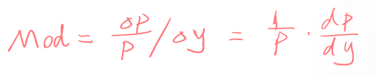 Mod = ΔP/P / Δy = 1/P · dP/dy